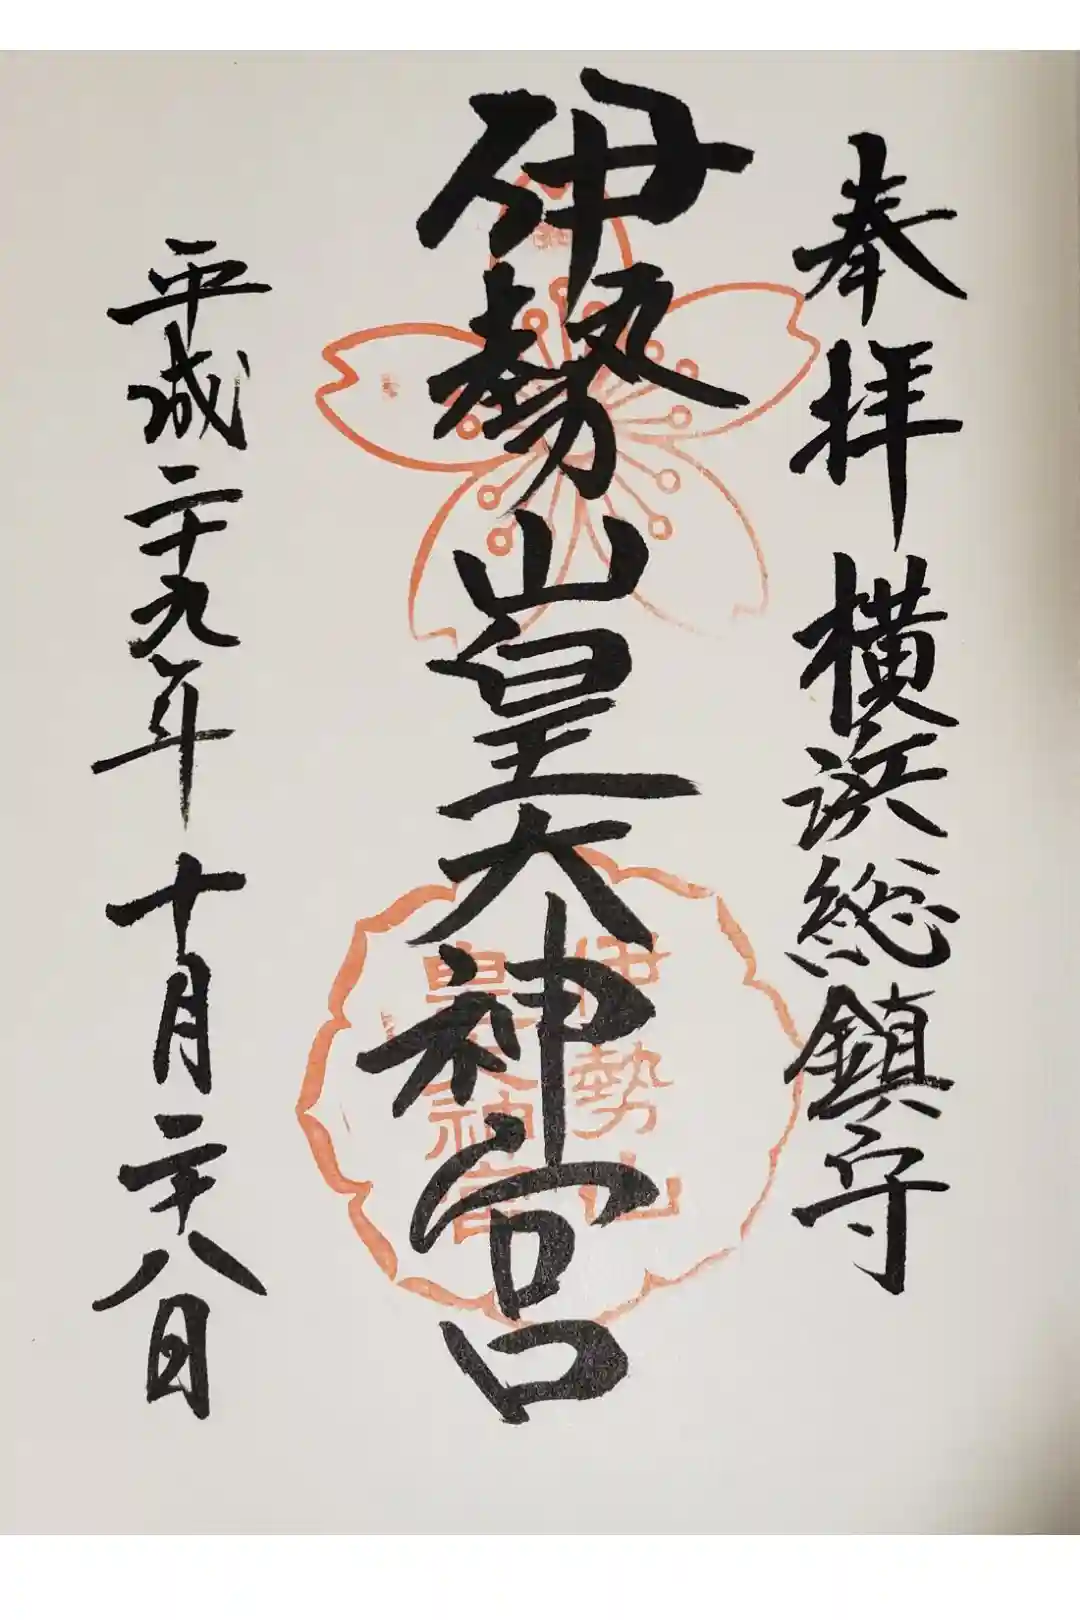 奉拝 横浜総鎮守
伊勢山皇大神宮
伊勢山
皇大神宮
平成二十九年 十月二十八日